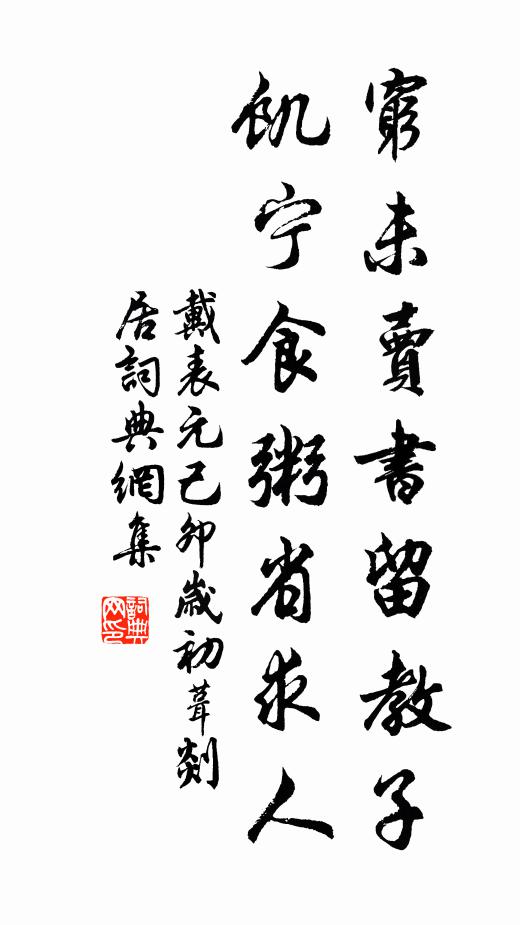 窮未賣書留教子
飢宁食粥省求人
戴表元己卯歲初葺剡
居詞典網集
詞典
网印